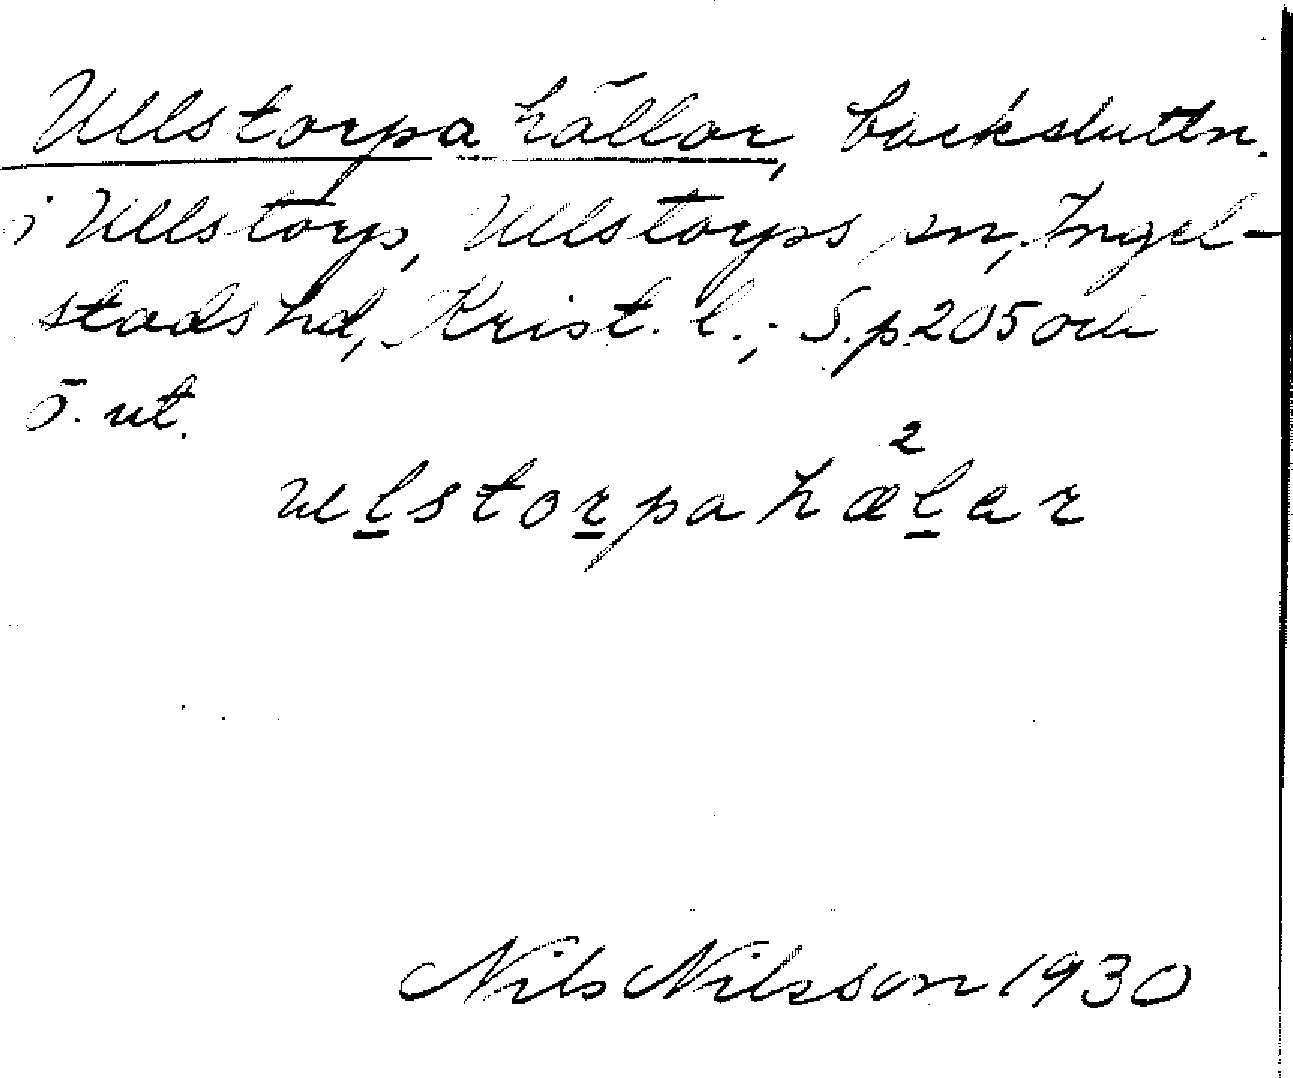 Ullstorpa hällor, backsluttn.
i Ullstorp, Ullstorps sn, Ingel-
stads hd, Krist. l.; S.p.205 och
ö. ut.
ulstorpa hæ²lar
Nils Nilsson 1930